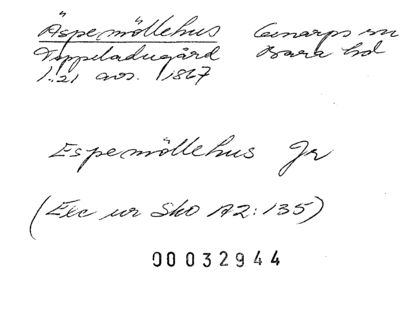 Äspemöllehus Genarps sn
Toppeladugård Bara hd
1:21 avs. 1867
Espemöllehus Jr
(Exc ur Sko A2:135)
00032944